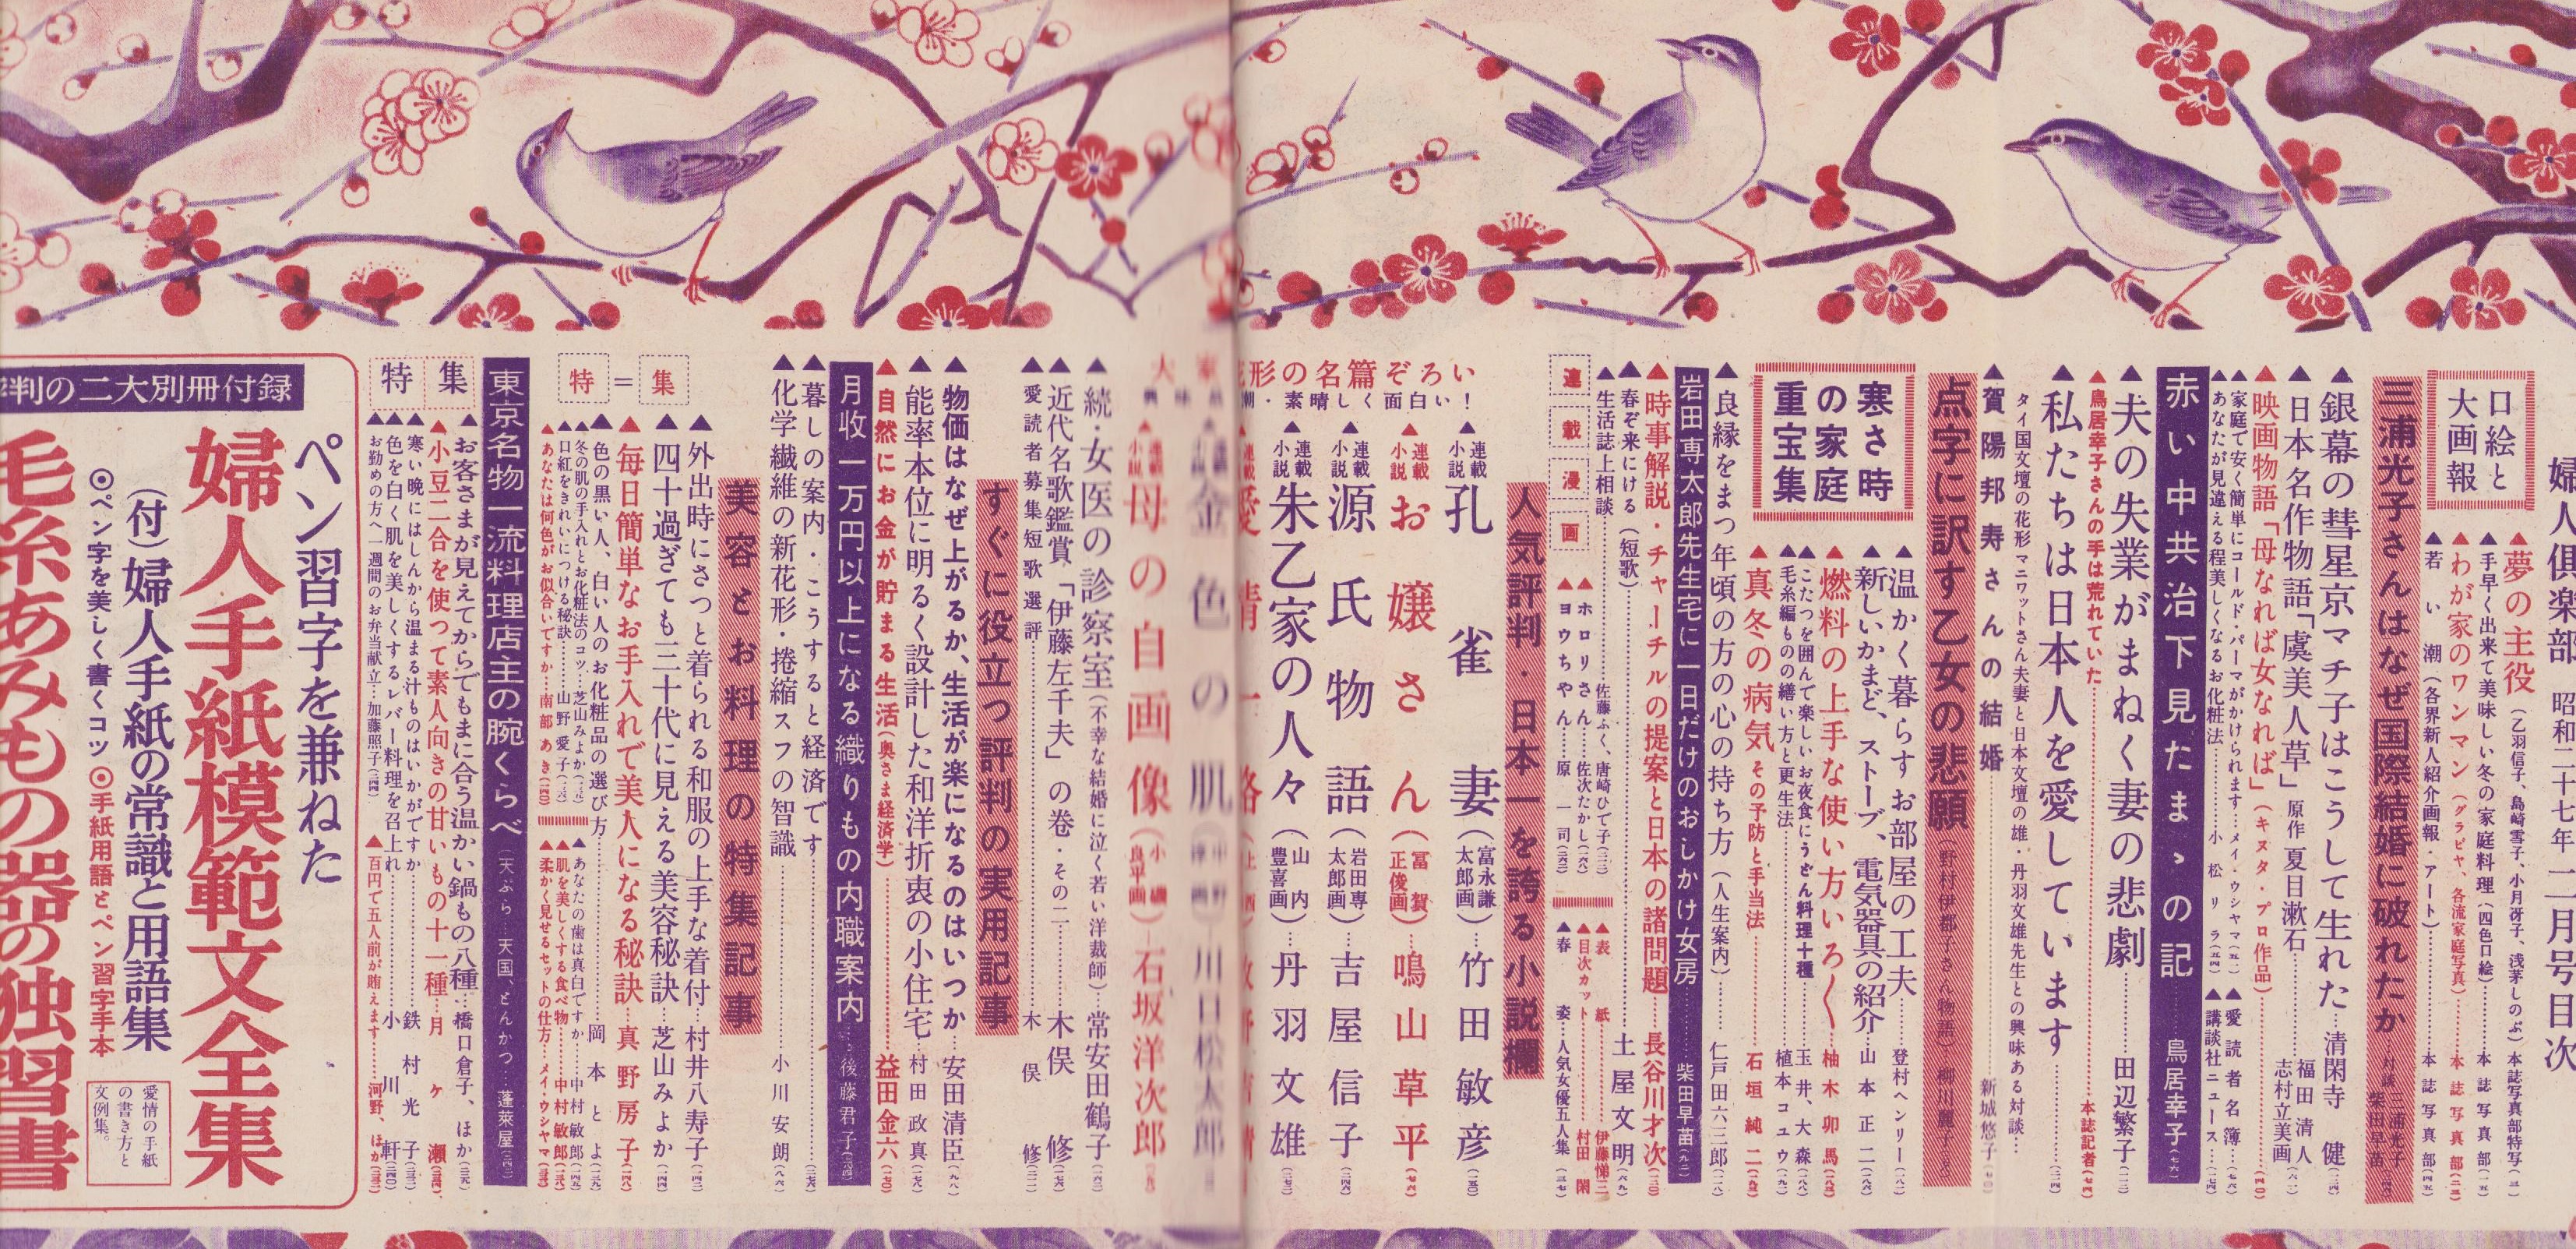 婦人倶楽部 昭和二十七年二月号目次
口絵と
大画報
▲夢の主役(乙羽信子、島崎雪子、小月冴子、浅茅しのぶ)本誌写真部特写
▲手早く出来て美味しい冬の家庭料理(四色口絵)……本誌写真部
▲わが家のワンマン(グラビヤ、各流家庭写真)……本誌写真部
▲若い潮(各界新人紹介画報・アート)……本誌写真部
三浦光子さんはなぜ国際結婚に破れたか……対談 三浦光子 柴田早苗
▲銀幕の彗星京マチ子はこうして生れた……清閑寺健
▲日本名作物語「虞美人草」原作 夏目漱石……福田清人 志村立美画
▲映画物語「母なれば女なれば」(キヌタ・プロ作品)
▲家庭で安く簡単にコールド・パーマがかけられます……メイ・ウシヤマ
▲あなたが見違える程美しくなるお化粧法……小松リラ
▲愛読者名簿
▲講談社ニュース
赤い中共治下見たまゝの記……鳥居幸子
▲夫の失業がまねく妻の悲劇……田辺繁子
▲鳥居幸子さんの手は荒れていた……本誌記者
▲私たちは日本人を愛しています
タイ国文壇の花形マニワットさん夫妻と日本文壇の雄・丹羽文雄先生との興味ある対談
▲賀陽邦寿さんの結婚……新城悠子
点字に訳す乙女の悲願(野村伊都子さん物語)柳川麗子
寒さ時
の家庭
重宝集
▲温かく暮らすお部屋の工夫……登村ヘンリー
▲新しいかまど、ストーブ、電気器具の紹介……山本正二
▲燃料の上手な使い方いろ〱……柚木卯馬
▲こたつを囲んで楽しいお夜食にうどん料理十種……玉井、大森
▲毛糸編ものの繕い方と更生法……植本コユウ
▲真冬の病気 その予防と手当法……石垣純二
▲良縁をまつ年頃の方の心の持ち方(人生案内)……仁戸田六三郎
岩田専太郎先生宅に一日だけのおしかけ女房……柴田早苗
▲時事解説・チャーチルの提案と日本の諸問題……長谷川才次
▲春ぞ来にける(短歌)……土屋文明
▲生活誌上相談……佐藤ふく、唐崎ひで子
連載漫画
▲ホロリさん……佐次たかし
▲ヨウちやん……原一司
▲表紙……伊藤悌三
▲目次カット……村田閑
▲春姿……人気女優五人集
人気評判・日本一を誇る小説欄
形の名篇ぞろい
潮・素晴しく面白い!
▲連載小説 孔雀妻(富永謙太郎画)……竹田敏彦
▲連載小説 お嬢さん(冨賀正俊画)……鳴山草平
▲連載小説 源氏物語(岩田専太郎画)……吉屋信子
▲連載小説 朱乙家の人々(山内豊喜画)……丹羽文雄
金色の肌……川口松太郎
▲連載小説 母の自画像(小磯良平画)……石坂洋次郎
▲続・女医の診察室(不幸な結婚に泣く若い洋裁師)……常安田鶴子
▲近代名歌鑑賞「伊藤左千夫」の巻・その二……木俣修
▲愛読者募集短歌選評……木俣修
すぐに役立つ評判の実用記事
▲物価はなぜ上がるか、生活が楽になるのはいつか……安田清臣
▲能率本位に明るく設計した和洋折衷の小住宅……村田政真
▲自然にお金が貯まる生活(奥さま経済学)……益田金六
月収一万円以上になる織りもの内職案内……後藤君子
▲暮しの案内・こうすると経済です
▲化学繊維の新花形・捲縮スフの智識……小川安朗
美容とお料理の特集記事
特=集
▲外出時にさっと着られる和服の上手な着付……村井八寿子
▲四十過ぎても三十代に見える美容秘訣……芝山みよか
▲毎日簡単なお手入れで美人になる秘訣……真野房子
▲色の黒い人、白い人のお化粧品の選び方……岡本とよ
▲冬の肌の手入れとお化粧法のコツ……芝山みよか
▲口紅をきれいにつける秘訣……山野愛子
▲あなたは何色がお似合いですか……南部あき
▲あなたの歯は真白ですか……中村敏郎
▲肌を美しくする食べ物……中村敏郎
▲柔かく見せるセットの仕方……メイ・ウシヤマ
東京名物一流料理店主の腕くらべ(天ぷら…天国、とんかつ…蓬萊屋)
特集
▲お客さまが見えてからでもまに合う温かい鍋もの八種……橋口倉子、ほか
▲小豆二合を使って素人向きの甘いもの十一種……月ヶ瀬
▲寒い晩にはしんから温まる汁ものはいかがですか……鉄村光子
▲色を白く肌を美しくするレバー料理を召上れ……小川軒
▲お勤めの方へ一週間のお弁当献立……加藤照子
▲百円で五人前が賄えます……河野、ほか
判の二大別冊付録
ペン習字を兼ねた
婦人手紙模範文全集
(付)婦人手紙の常識と用語集
◎ペン字を美しく書くコツ ◎手紙用語とペン習字手本
愛情の手紙
の書き方と
文例集。
毛糸あみもの器の独習書